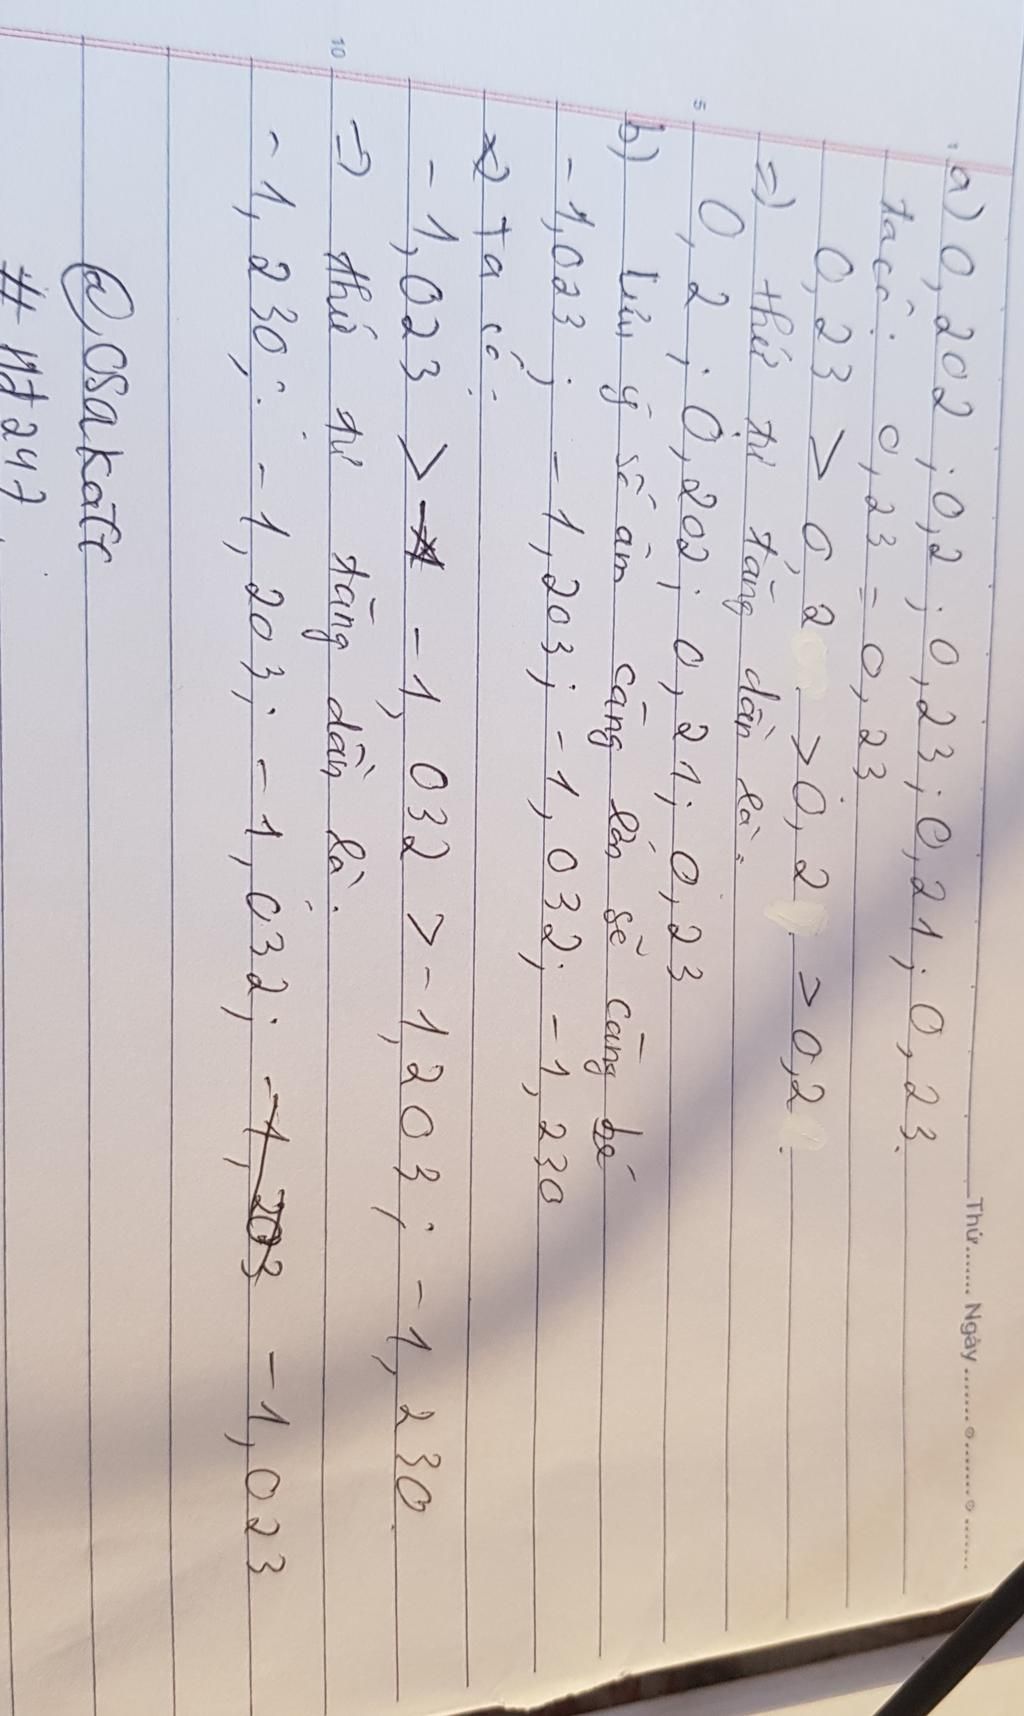 Thứ....... Ngày.................
a) 0,202 ; 0,2 ; 0,23 ; 0,21 ; 0,23.
ta có: 0,23 = 0,23
0,23 > 0,2 > 0,2 > 0,2
=) thứ tự tăng dần là:
5
0,2 ; 0,202 ; 0,21 ; 0,23
b) Lưu ý số âm càng lớn sẽ càng bé
-1,023 ; -1,203 ; -1,032 ; -1,230
Ta có:
-1,023 > -1,032 > -1,203 ; -1,230.
10
=) thứ tự tăng dần là:
-1,230 ; -1,203 ; -1,032 ; -1,203 -1,023